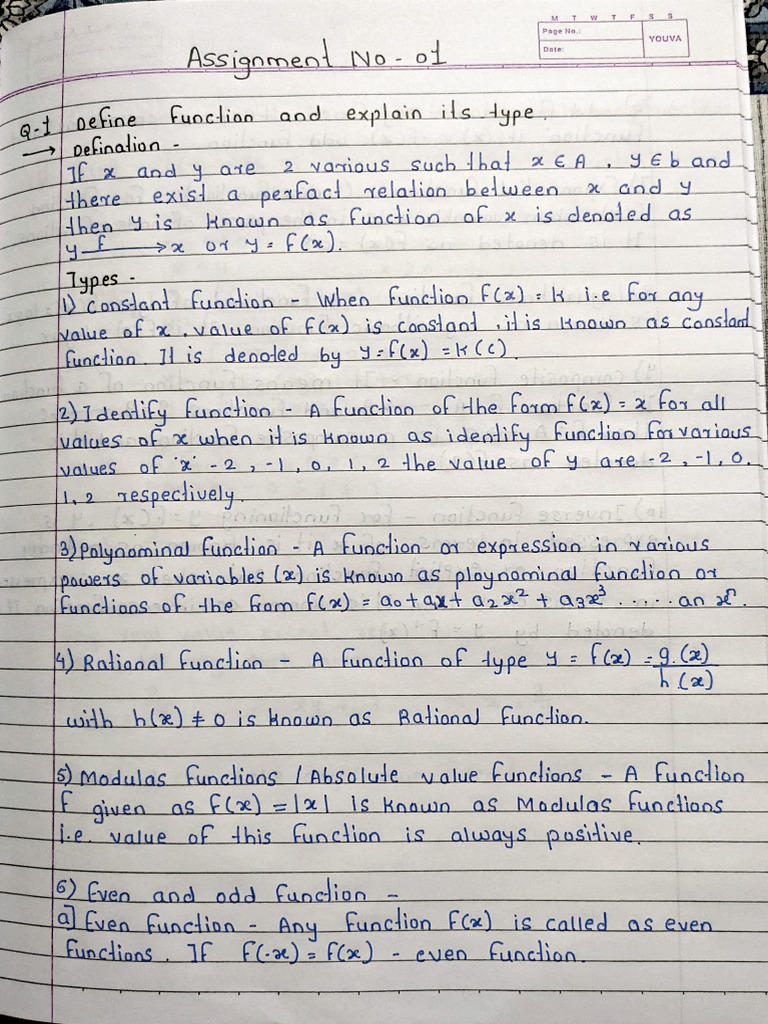 M T W T F S S
Page No.:
Date:
YOUVA
Assignment No - 01
Q-1 Define function and explain its type.
→ Defination -
If x and y are 2 various such that x ∈ A, y ∈ b and
there exist a perfact relation between x and y
then y is known as function of x is denoted as
y —f→ x or y = f(x).
Types -
1) Constant function - When function f(x) = k i.e for any
value of x, value of f(x) is constant, it is known as constant
function. It is denoted by y = f(x) = k (c)
2) Identify function - A function of the form f(x) = x for all
values of x when it is known as identify function for various
values of 'x' -2, -1, 0, 1, 2 the value of y are -2, -1, 0,
1, 2 respectively.
3) Polynominal function - A function or expression in various
powers of variables (x) is known as ploynominal function or
functions of the from f(x) = a0 + a1x + a2x² + a3x³ ..... an xⁿ.
4) Rational function - A function of type y = f(x) = g.(x)/h(x)
with h(x) ≠ 0 is known as Rational function.
5) Modulas functions / Absolute value functions - A function
f given as f(x) = |x| is known as Modulas functions
i.e. value of this function is always positive.
6) Even and odd function -
a] Even function - Any function f(x) is called as even
functions. If f(-x) = f(x) - even function.